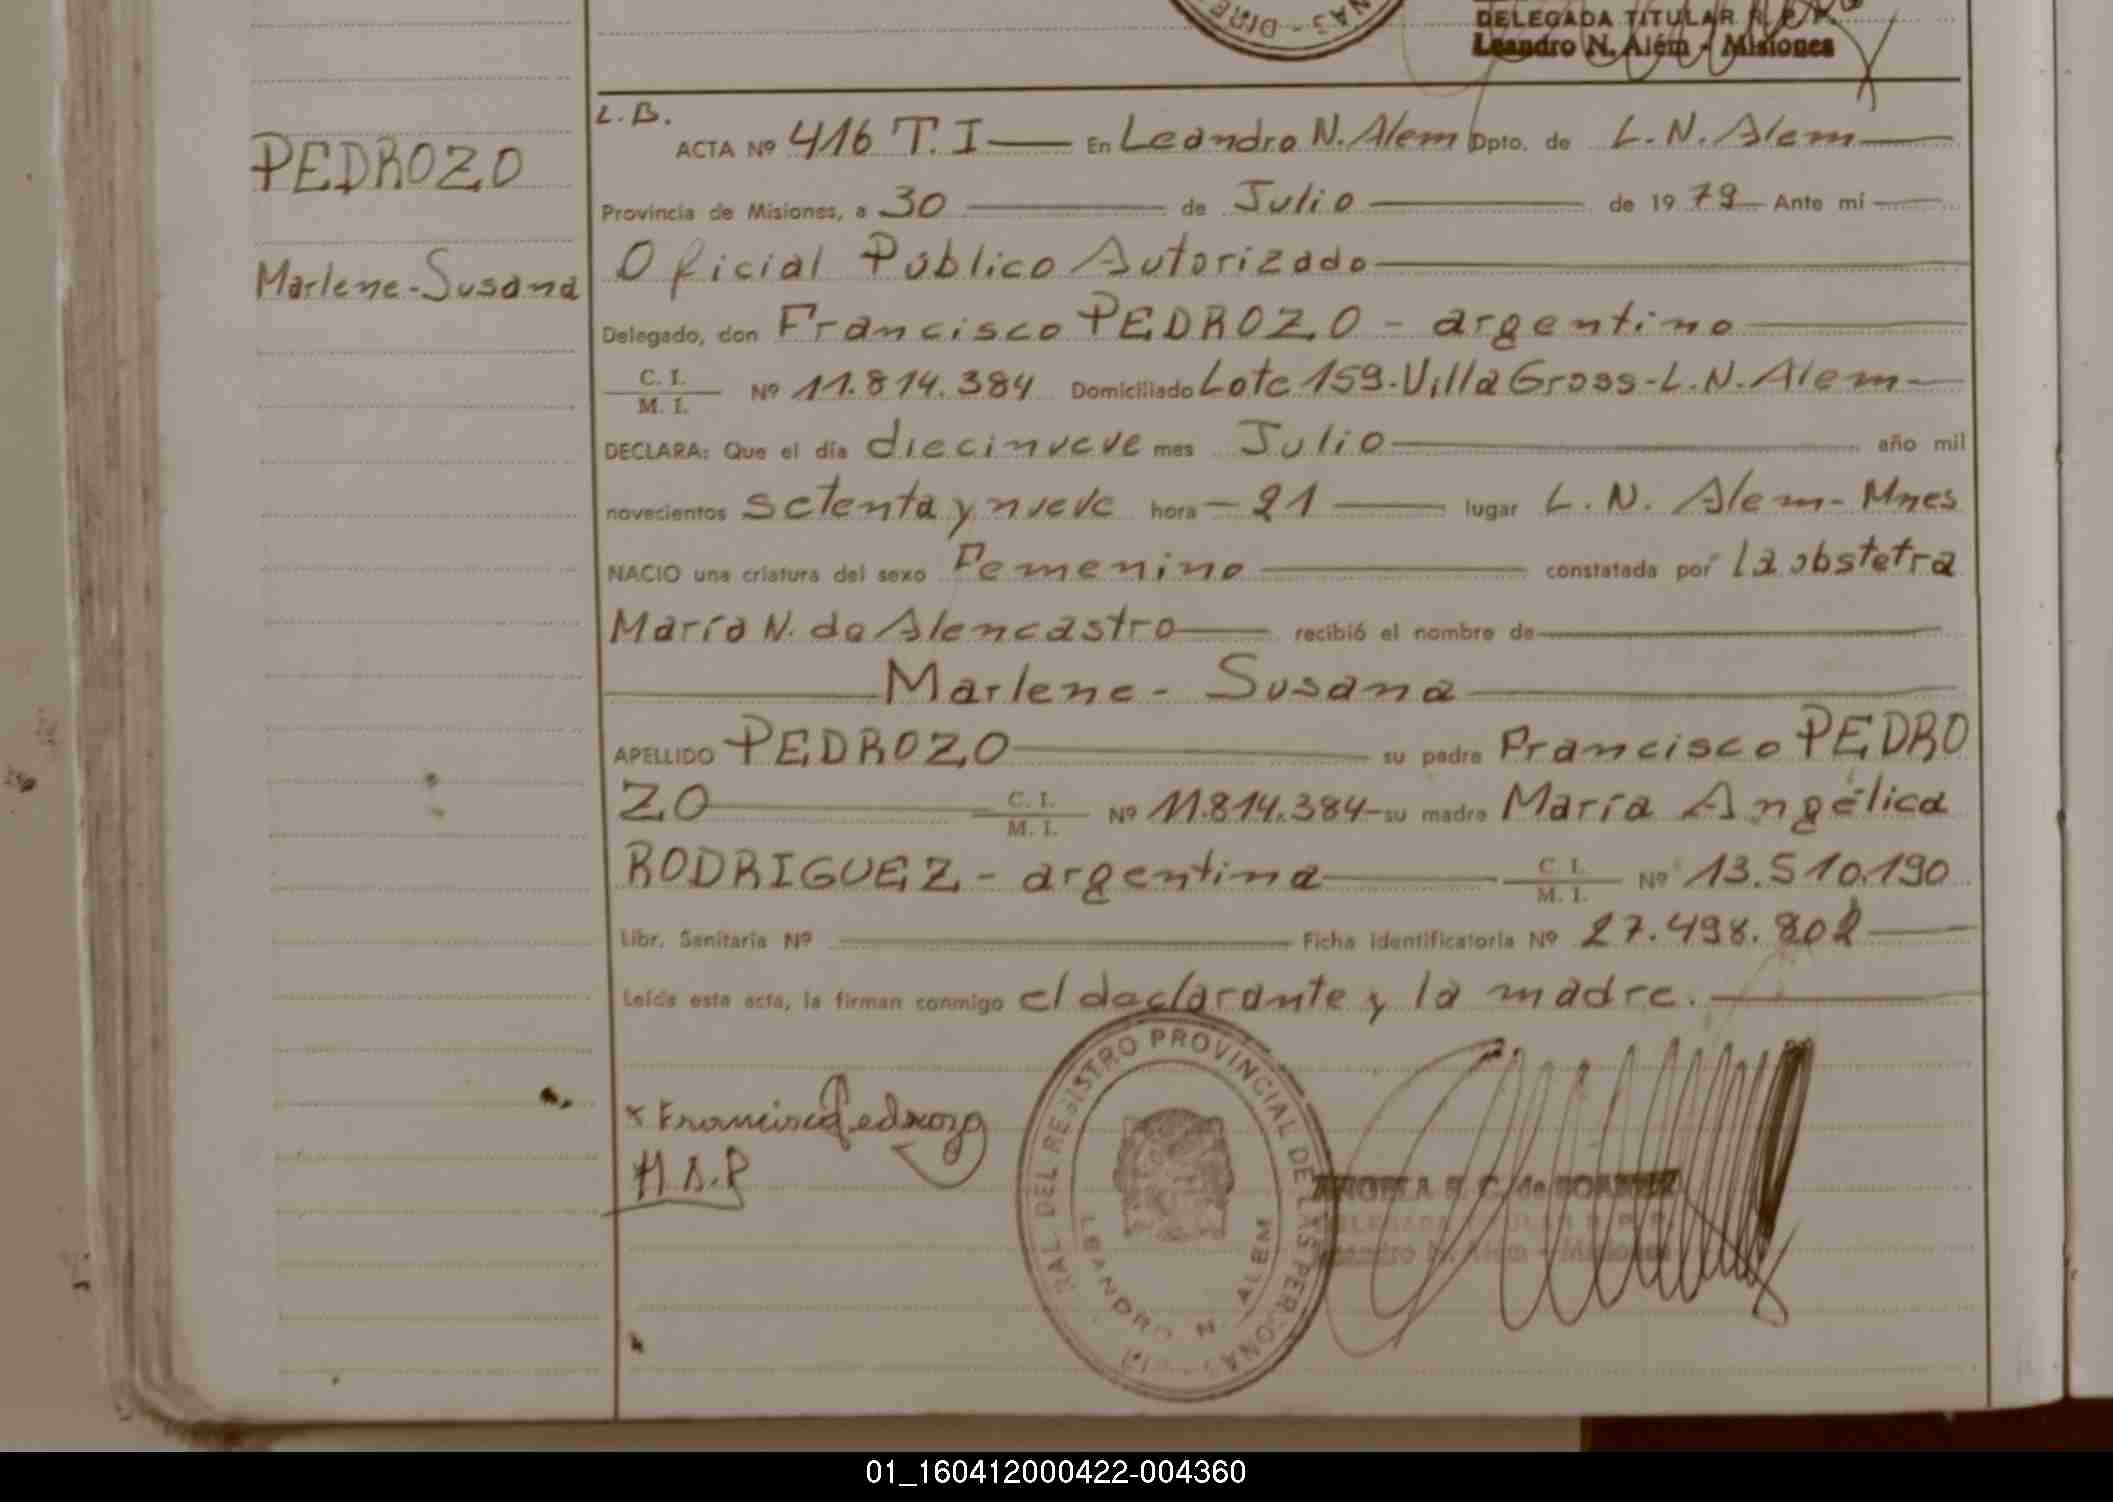 DIRE - NAS
DELEGADA TITULAR R. P. P.
Leandro N. Além - Misiones
L.B.
ACTA Nº 416 T. I En Leandro N. Alem Dpto. de L. N. Alem
PEDROZO
Provincia de Misiones, a 30 de Julio de 1979 Ante mí
Marlene-Susana
Oficial Público Autorizado
Delegado, don Francisco PEDROZO - argentino
C. I. / M. I. Nº 11.814.384 Domiciliado Lote 159-Villa Gross-L.N.Alem-
DECLARA: Que el día diecinueve mes Julio año mil
novecientos setenta y nueve hora - 21 lugar L. N. Alem- Mnes
NACIO una criatura del sexo Femenino constatada por la obstetra
María N. de Alencastro recibió el nombre de
Marlene - Susana
APELLIDO PEDROZO su padre Francisco PEDRO
ZO C. I. / M. I. Nº 11.814.384- su madre María Angélica
RODRIGUEZ - argentina C. I. / M. I. Nº 13.510.190
Libr. Sanitaria Nº Ficha Identificatoria Nº 27.498.802
Leída esta acta, la firman conmigo el declarante y la madre.
x Francisco Pedrozo
M.A.R
RAL DEL REGISTRO PROVINCIAL DE LAS PERSONAS - DIR
LEANDRO N. ALEM
DELEGADA TITULAR R. P. P.
Leandro N. Alem - Misiones
01_160412000422-004360